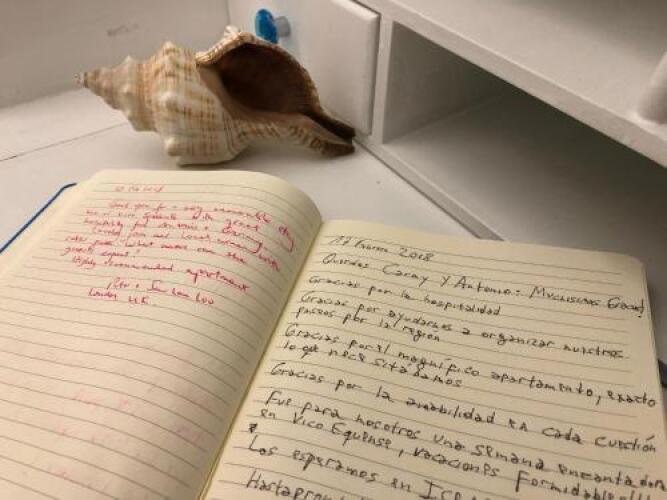 Thank you for a very memorable stay
in Vico Equense with great
hospitality
lovely food and local wines
what more can the
guests expect!
Highly recommended apartment
London UK.
17 Febrero 2018
Queridos Carmy y Antonio: Muchisimas Gracias!
Gracias por la hospitalidad
Gracias por ayudarnos a organizar nuestros
paseos por la región
Gracias por el magnífico apartamento, exacto
lo que necesitábamos
Gracias por la amabilidad en cada cuestión
Fue para nosotros una semana encantadora
en Vico Equense, vacaciones formidables
Los esperamos en
Hasta pron